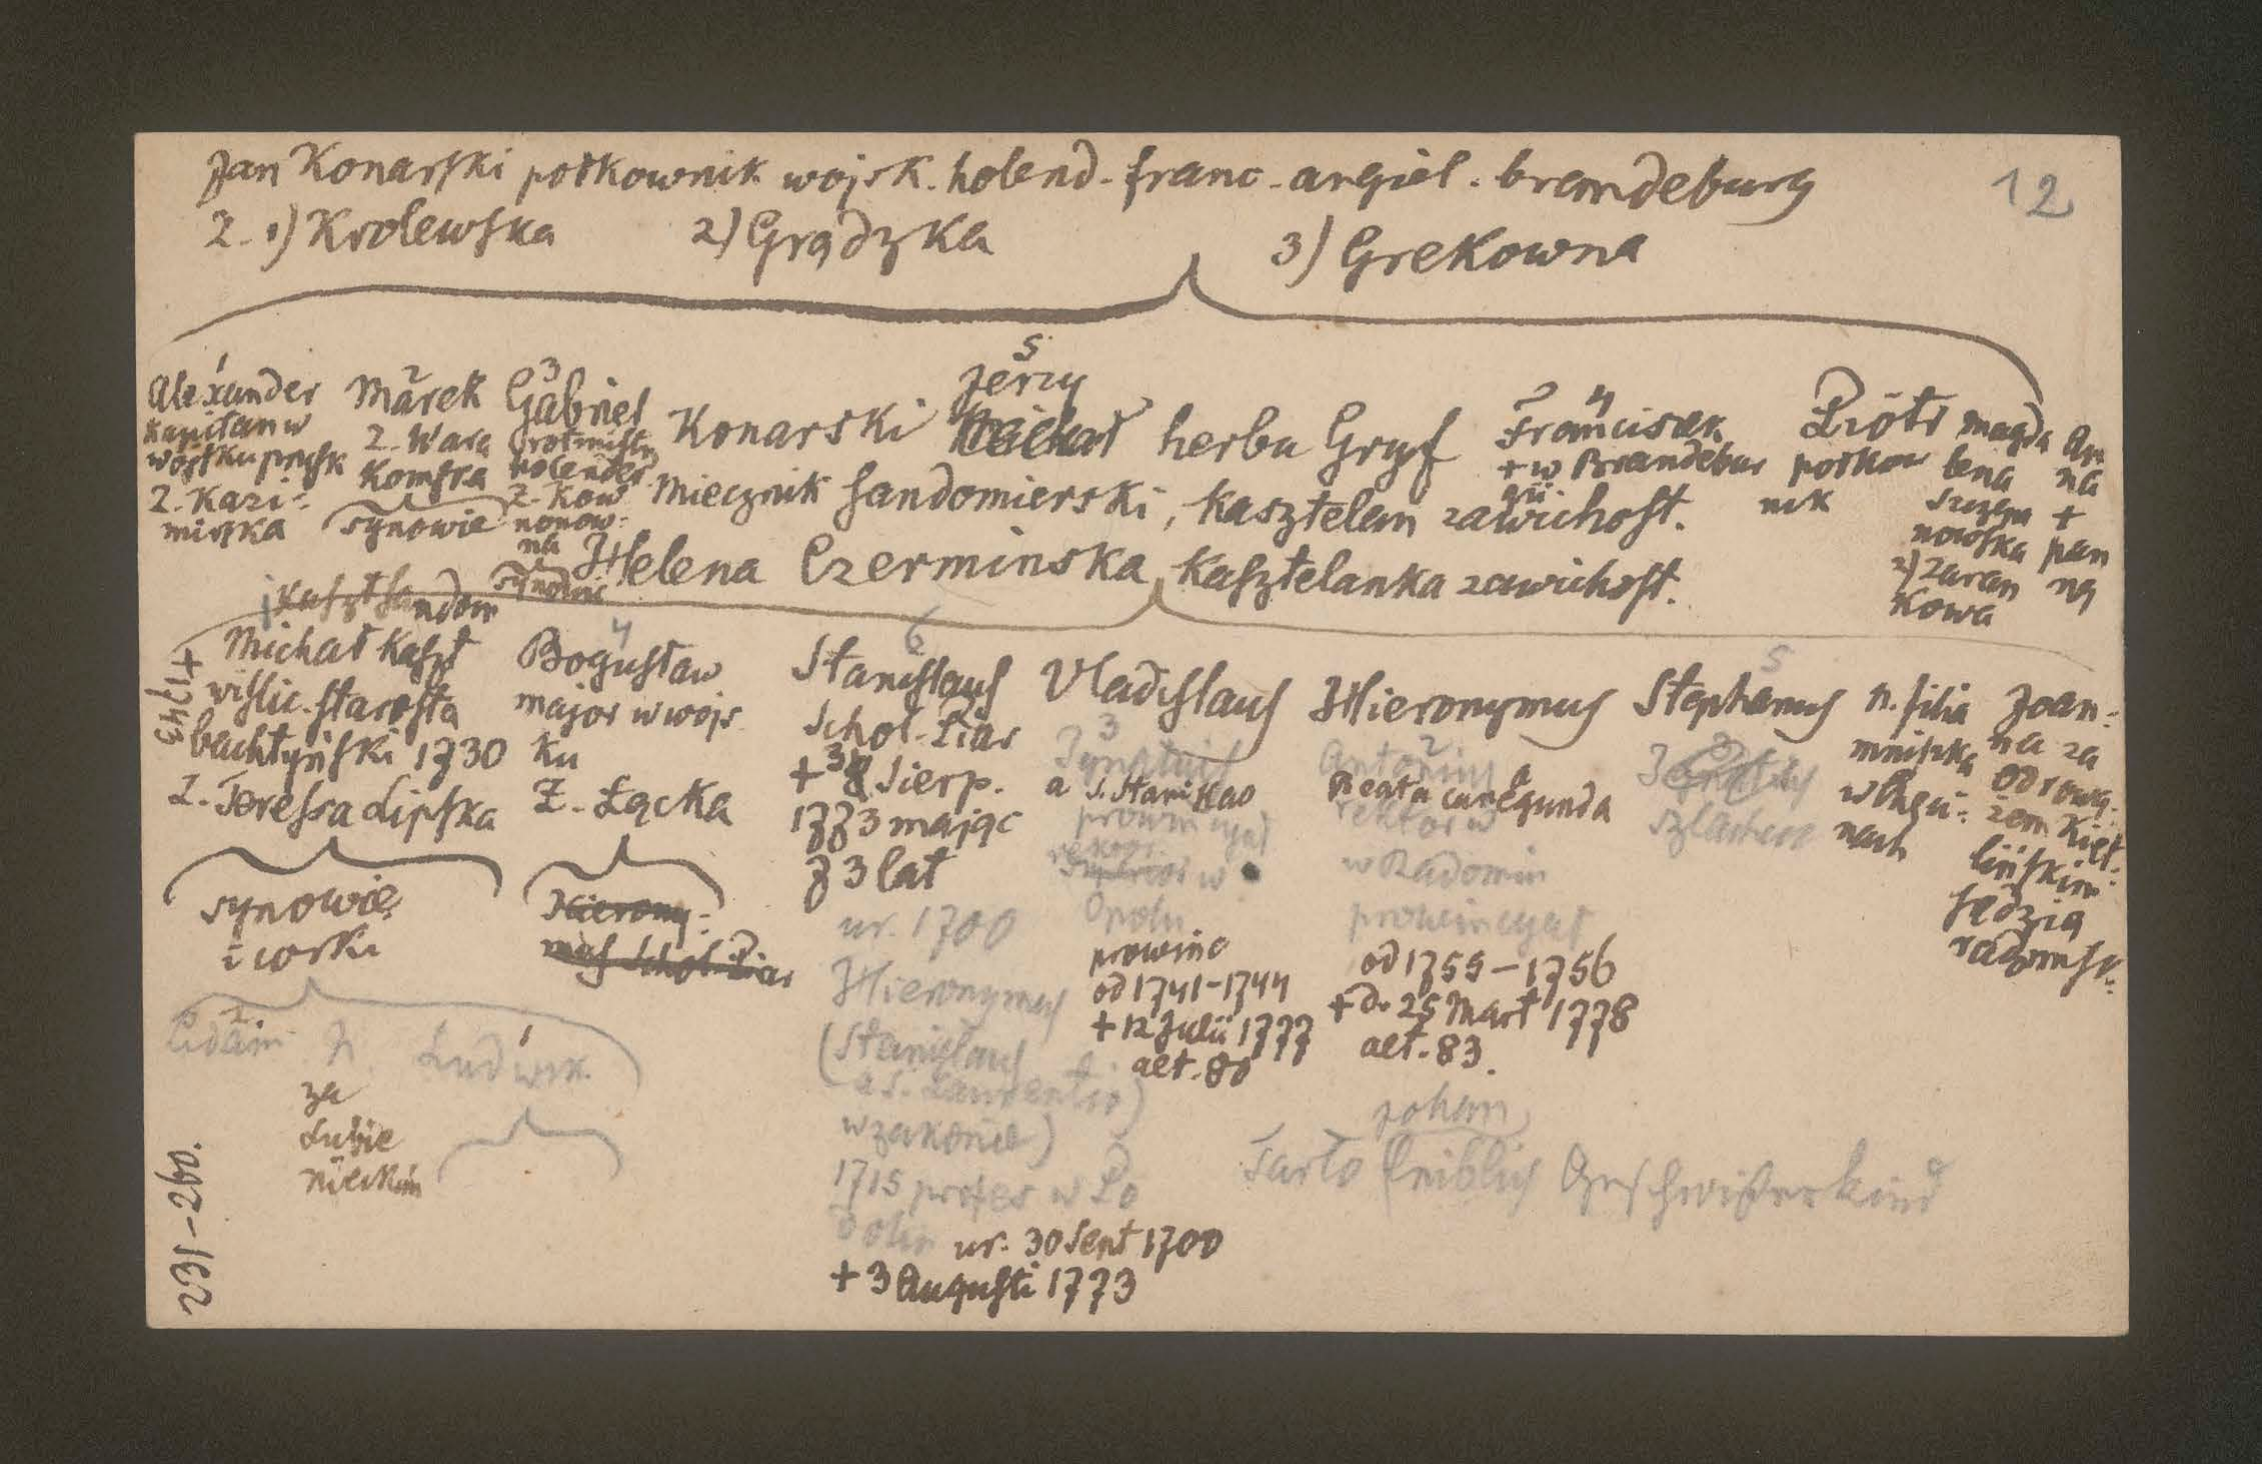 Jan Konarski połkownik wojsk. holend. franc. angiel. brandeburg
12
Ż. 1) Krolewska 2) Grądzka 3) Grekowna
1
Alexander
kapitan w
wojsku prusk
Ż. Kazi-
mirska
2
Marek
Ż. Wara
Komska
synowie
3
Gabriel
rotmistrz
holender
Ż. Kow
nonow-
na
synowie
5
Jerzy
Konarski Michał herbu Gryf
Miecznik Sandomierski, Kasztelan zawichost.
Helena Czerminska Kasztelanka zawichost.
4
Franciszek
+ w Brandebur
gii
Piotr
połkow
nik
Magda
lena
nowska
2) Zaran
kowa
An
na
+
pan
ną
i kaszt sandom
Michał kaszt
wislic. starosta
bachtyński 1730
Ż. Teressa Lipska
+1743
synowie
i corki
2
Adam N. 1 Ludwik
za
Lubie
nieckim
4
Bogusław
major w wojs
ku
Ż. Łącka
Hierony-
mus Schol. Piar
6
Stanislaus
Schol. Piar
+ 3 Sierp.
1773 mając
73 lat
ur. 1700
Hieronymus
(Stanislaus
a S. Laurentio)
w zakonie)
1715 profes w Po
dolin ur. 30 Sept 1700
+ 3 Augusti 1773
Vladislaus
3
Ignatius
a S. Stanislao
prowincyał
rektor w
Opolu
prowinc
od 1741-1744
+ 12 Julii 1777
aet. 80
Hieronymus
2
Antonius
a Beata Cunegunda
rektor w
w Radomiu
prowincyał
od 1755-1756
+ d. 25 Mart 1778
aet. 83.
5
Stephanus
3
N. filia
mniszka
Joan-
na za
Odrową-
żem Kieł-
lińskim
sędzią
radomsk.
Johann
Tarlo leiblich Geschwisterkind
231-260.